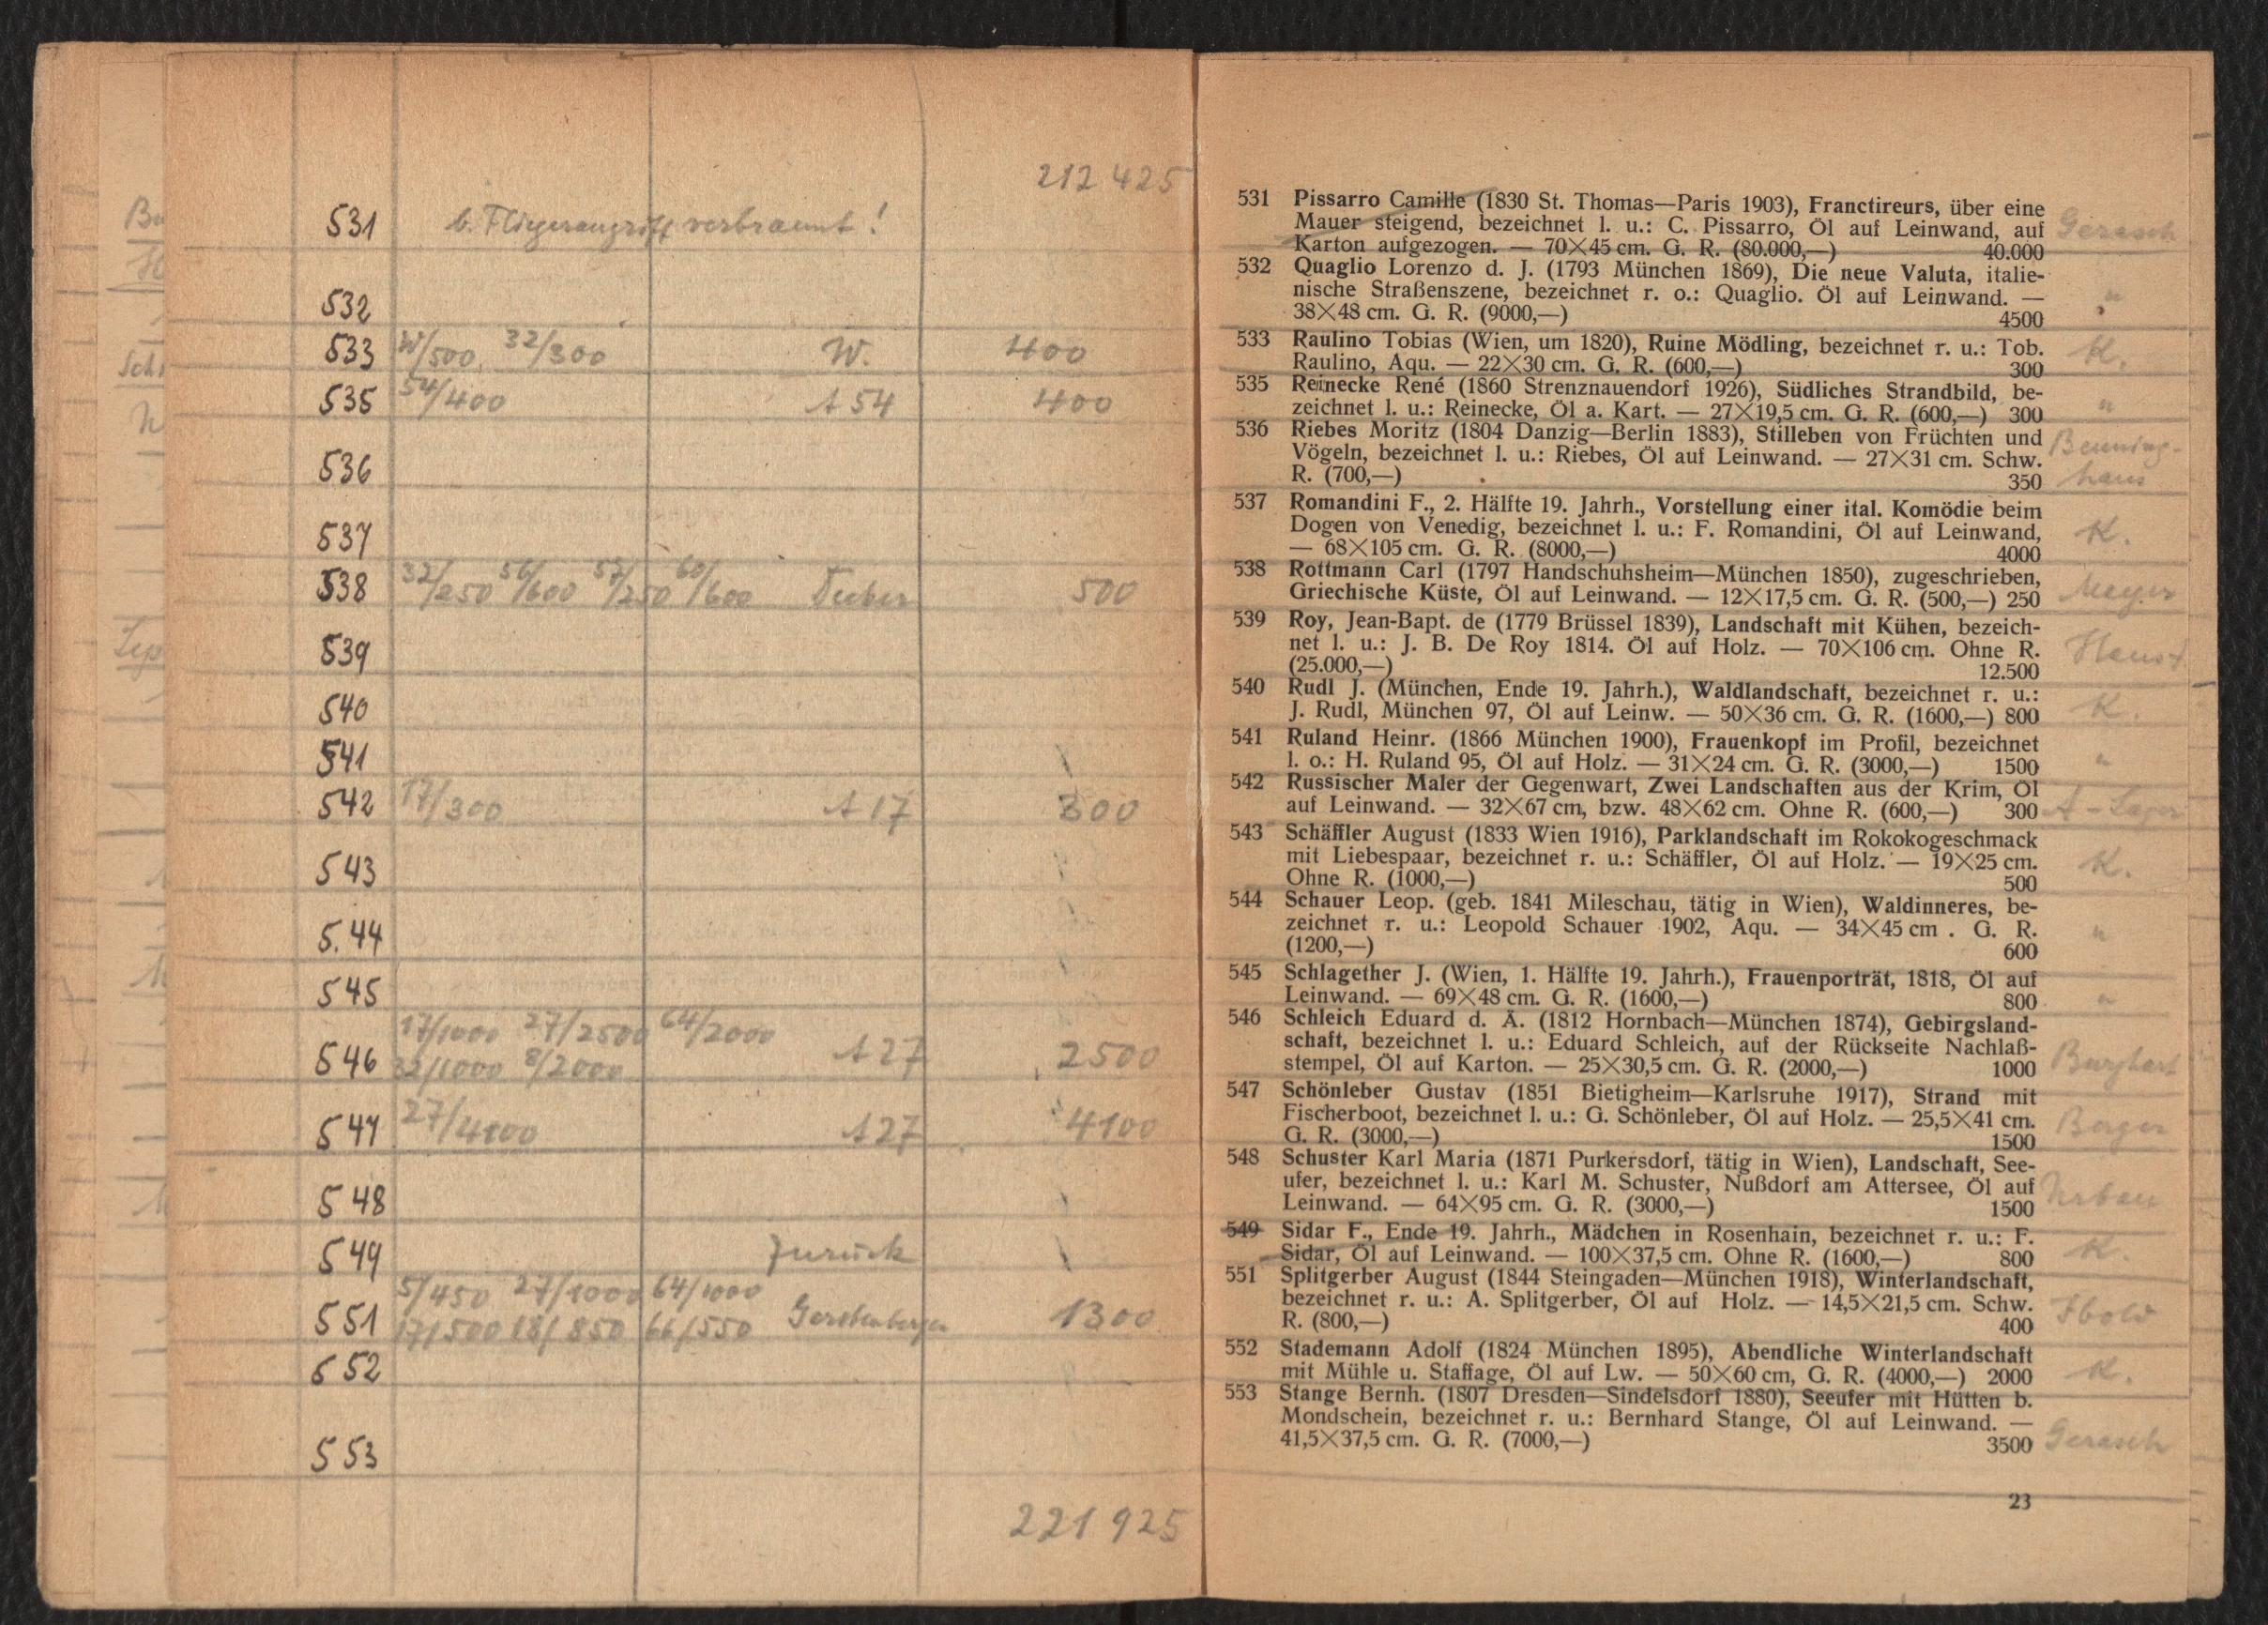 212 425
531 b. Fliegerangriff verbrannt!
532
533 W/500, 32/300 W. 400
535 54/400 A 54 400
536
537
538 32/250 56/600 57/250 60/600 500
539
540
541
542 17/300 A 17 300
543
5.44
545
17/1000 27/2500 64/2000
546 32/1000 8/2000 A 27 2500
547 27/4100 A 27 4100
548
549 Zurück
5/450 27/1000 64/1000
551 17/500 18/850 66/550 Gerstenberger 1300
552
553
221 925
531 Pissarro Camille (1830 St. Thomas—Paris 1903), Franctireurs, über eine
Mauer steigend, bezeichnet l. u.: C. Pissarro, Öl auf Leinwand, auf Gerasch
Karton aufgezogen. — 70×45 cm. G. R. (80.000,—) 40.000
532 Quaglio Lorenzo d. J. (1793 München 1869), Die neue Valuta, italie-
nische Straßenszene, bezeichnet r. o.: Quaglio. Öl auf Leinwand. — "
38×48 cm. G. R. (9000,—) 4500
533 Raulino Tobias (Wien, um 1820), Ruine Mödling, bezeichnet r. u.: Tob. K.
Raulino, Aqu. — 22×30 cm. G. R. (600,—) 300
535 Reinecke René (1860 Strenznauendorf 1926), Südliches Strandbild, be-
zeichnet l. u.: Reinecke, Öl a. Kart. — 27×19,5 cm. G. R. (600,—) 300 "
536 Riebes Moritz (1804 Danzig—Berlin 1883), Stilleben von Früchten und Benning-
Vögeln, bezeichnet l. u.: Riebes, Öl auf Leinwand. — 27×31 cm. Schw.
R. (700,—) 350 haus
537 Romandini F., 2. Hälfte 19. Jahrh., Vorstellung einer ital. Komödie beim
Dogen von Venedig, bezeichnet l. u.: F. Romandini, Öl auf Leinwand, K.
— 68×105 cm. G. R. (8000,—) 4000
538 Rottmann Carl (1797 Handschuhsheim—München 1850), zugeschrieben,
Griechische Küste, Öl auf Leinwand. — 12×17,5 cm. G. R. (500,—) 250 Meyer
539 Roy, Jean-Bapt. de (1779 Brüssel 1839), Landschaft mit Kühen, bezeich-
net l. u.: J. B. De Roy 1814. Öl auf Holz. — 70×106 cm. Ohne R.
(25.000,—) 12.500
540 Rudl J. (München, Ende 19. Jahrh.), Waldlandschaft, bezeichnet r. u.:
J. Rudl, München 97, Öl auf Leinw. — 50×36 cm. G. R. (1600,—) 800 K.
541 Ruland Heinr. (1866 München 1900), Frauenkopf im Profil, bezeichnet
l. o.: H. Ruland 95, Öl auf Holz. — 31×24 cm. G. R. (3000,—) 1500 "
542 Russischer Maler der Gegenwart, Zwei Landschaften aus der Krim, Öl
auf Leinwand. — 32×67 cm, bzw. 48×62 cm. Ohne R. (600,—) 300 A-Lager
543 Schäffler August (1833 Wien 1916), Parklandschaft im Rokokogeschmack
mit Liebespaar, bezeichnet r. u.: Schäffler, Öl auf Holz. — 19×25 cm. K.
Ohne R. (1000,—) 500
544 Schauer Leop. (geb. 1841 Mileschau, tätig in Wien), Waldinneres, be-
zeichnet r. u.: Leopold Schauer 1902, Aqu. — 34×45 cm . G. R. "
(1200,—) 600
545 Schlagether J. (Wien, 1. Hälfte 19. Jahrh.), Frauenporträt, 1818, Öl auf
Leinwand. — 69×48 cm. G. R. (1600,—) 800 "
546 Schleich Eduard d. Ä. (1812 Hornbach—München 1874), Gebirgsland-
schaft, bezeichnet l. u.: Eduard Schleich, auf der Rückseite Nachlaß-
stempel, Öl auf Karton. — 25×30,5 cm. G. R. (2000,—) 1000 Burghart
547 Schönleber Gustav (1851 Bietigheim—Karlsruhe 1917), Strand mit
Fischerboot, bezeichnet l. u.: G. Schönleber, Öl auf Holz. — 25,5×41 cm. Berger
G. R. (3000,—) 1500
548 Schuster Karl Maria (1871 Purkersdorf, tätig in Wien), Landschaft, See-
ufer, bezeichnet l. u.: Karl M. Schuster, Nußdorf am Attersee, Öl auf Urban
Leinwand. — 64×95 cm. G. R. (3000,—) 1500
549 Sidar F., Ende 19. Jahrh., Mädchen in Rosenhain, bezeichnet r. u.: F.
Sidar, Öl auf Leinwand. — 100×37,5 cm. Ohne R. (1600,—) 800 K.
551 Splitgerber August (1844 Steingaden—München 1918), Winterlandschaft,
bezeichnet r. u.: A. Splitgerber, Öl auf Holz. — 14,5×21,5 cm. Schw.
R. (800,—) 400
552 Stademann Adolf (1824 München 1895), Abendliche Winterlandschaft
mit Mühle u. Staffage, Öl auf Lw. — 50×60 cm, G. R. (4000,—) 2000 K.
553 Stange Bernh. (1807 Dresden—Sindelsdorf 1880), Seeufer mit Hütten b.
Mondschein, bezeichnet r. u.: Bernhard Stange, Öl auf Leinwand. —
41,5×37,5 cm. G. R. (7000,—) 3500 Gerasch
23